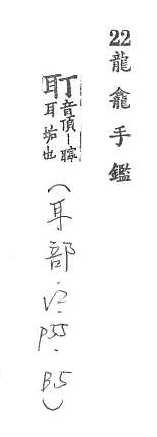 22龍龕手鑑
耵音頂ー聹
耳垢也
(耳部.V2.P55.B5)